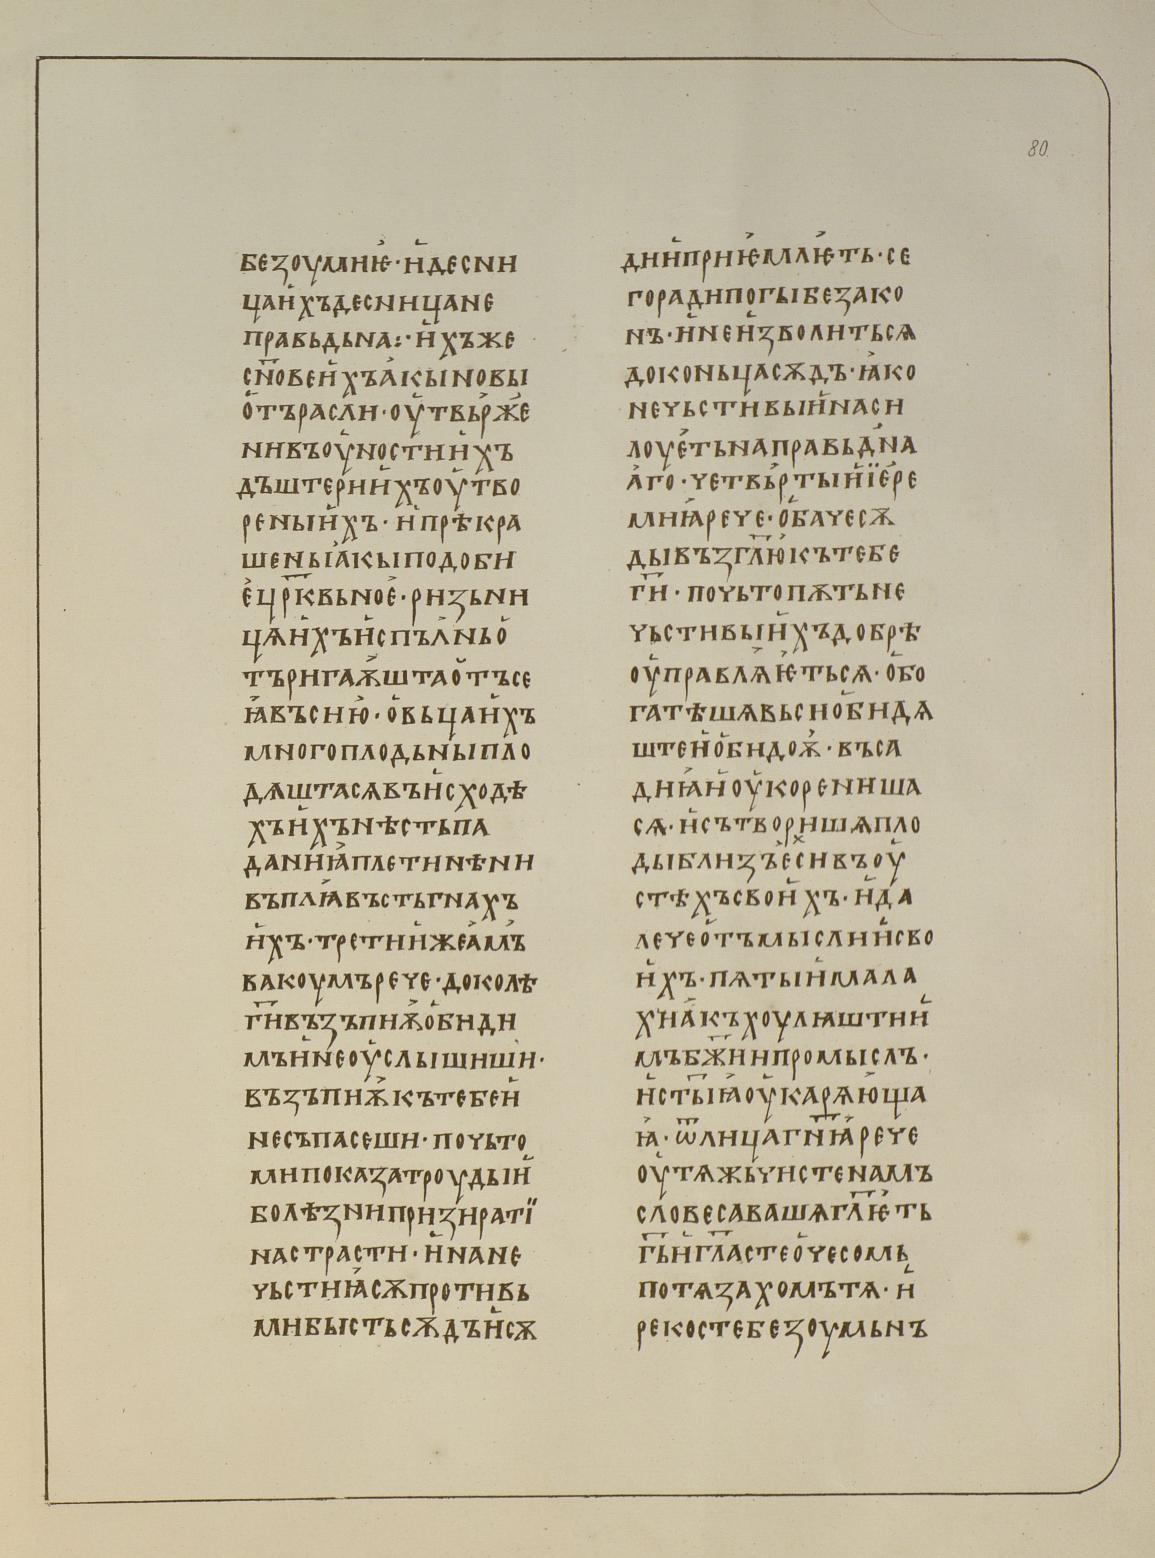 80
безоумиѥ · и҆десни
цаи҆хъдесницане
правьдьна:· и҆хъже
сн҃овеи҆хъа҆кынови
о҆търаслн · оу҆твьрже
нивъоу҆ностии҆хъ
дъштерии҆хъоу҆тво
рены͡и҆хъ · и҆прѣкра
шеныа҆кыподоби
е҆цр҃квьное҆ · ризьни
цѧи҆хъи҆спълньо҆
търигаѭштао҆тъсе
ꙗ҆въсню҆ · о҆вьцаи҆хъ
многоплодьныпло
дѧштасѧвъи҆сходѣ
хъи҆хънѣстьпа
данꙗ҆плетинѣни
въплꙗ҆въстьгнахъ
и҆хъ · третии҆жеа҆мъ
вакоумърече · доколѣ
ги҃възъпиѭо҆биди
мъи҆неоу҆слышиши ·
възъпиѭкътебеи҆
несъпасеши · почьто
мипоказатроудыи҆
болѣзниприziратї
настрасти · и҆нане
чьстиꙗ҆сѫпротивь
мибыстьсѫдъи҆сѫ
дии҆приѥ҆млѥ҆ть · се
горадипогыбезако
нъ · и҆неи҆зволитьсѧ
доконьцасѫдъ · ꙗ҆ко
нечьстивыи҆наси
лоуе҆тьнаправьдьна
а҆го · четвьртыи҆їе҆ре
миꙗ҆рече · о҆бачесѫ
дывъзгл҃ю҆кътебе
ги҃ · почьтопѫтьне
чьстивыи҆хъдобрѣ
оу҆правлѧѥ҆тьсѧ · о҆бо
гатѣшѧвьсио҆бидѧ
штеи҆о҆бидоѭ · въса
диꙗ҆и҆оу҆корениша
сѧ · и҆сътворишѧпло
дыблизъе҆сивъоу҆
стѣхъсвои҆хъ · и҆да
лечео҆тъмыслии҆сво
и҆хъ · пѧтыи҆мала
хиа҆къхоулѩштии҆
мъбж҃иипромыслъ ·
и҆ст҃ыꙗ҆оу҆карѧю҆ща
ꙗ҆ · ѿлицагн҃ꙗ҆рече
оу҆тѧжьчистенамъ
словесавашѧгл҃ѥ҆ть
гь҃и҆гл҃астео҆чесомь
потѧзахомътѧ · и҆
рекостебезоумьнъ